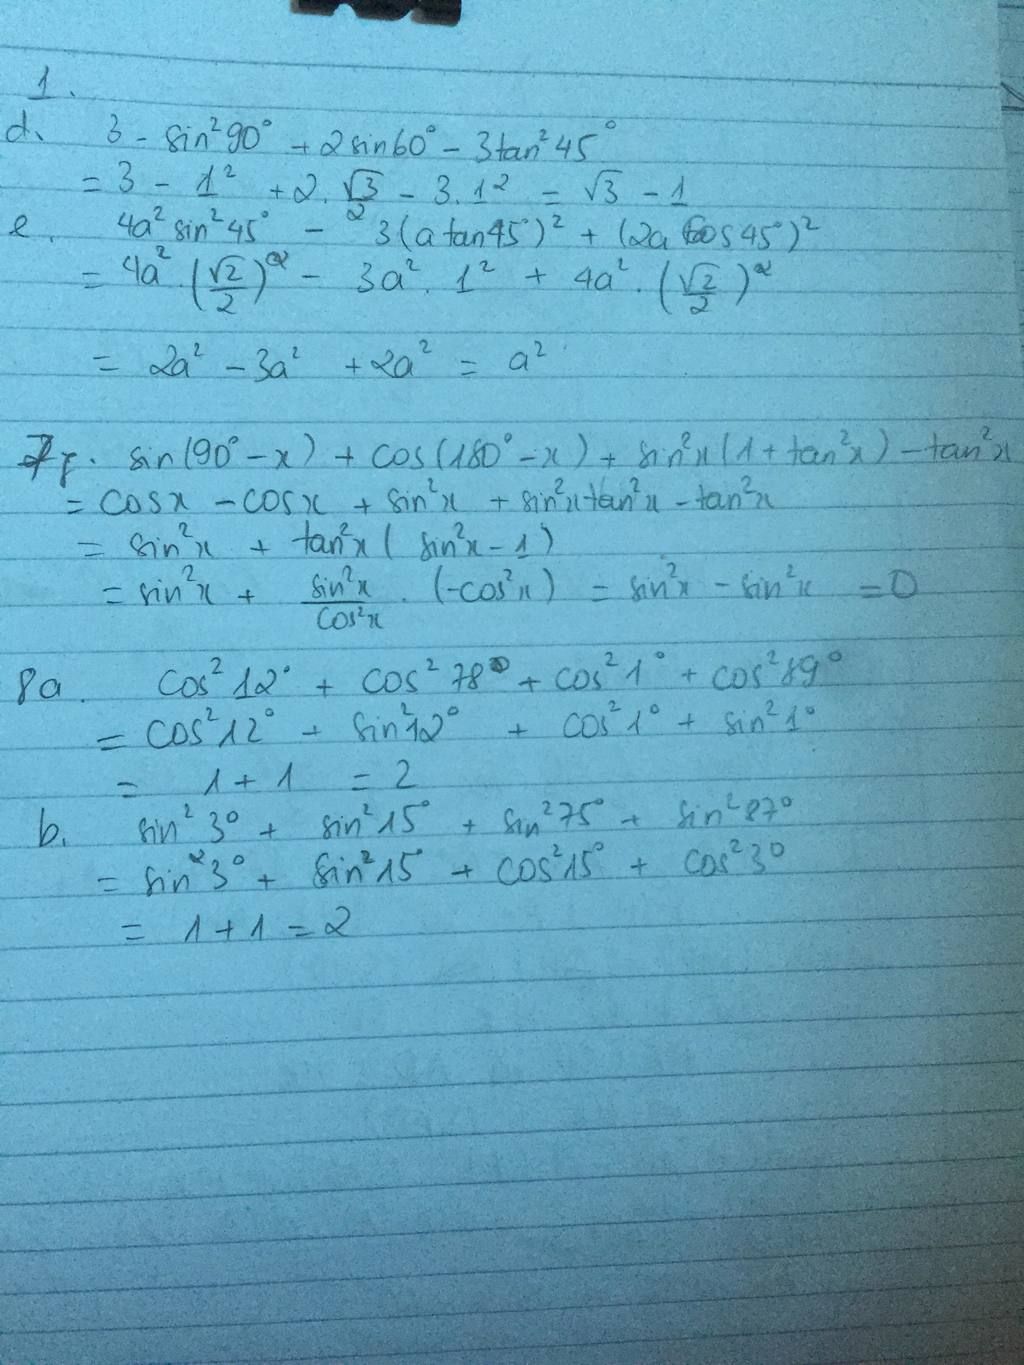 1.
d. 3 - sin²90° + 2sin60° - 3tan²45°
= 3 - 1² + 2.√3/2 - 3.1² = √3 - 1
e. 4a²sin²45° - 3(a tan45°)² + (2a cos45°)²
= 4a².(√2/2)² - 3a².1² + 4a².(√2/2)²
= 2a² - 3a² + 2a² = a²
7f. sin(90° - x) + cos(180° - x) + sin²x(1 + tan²x) - tan²x
= cosx - cosx + sin²x + sin²xtan²x - tan²x
= sin²x + tan²x(sin²x - 1)
= sin²x + sin²x/cos²x . (-cos²x) = sin²x - sin²x = 0
8a. cos²12° + cos²78° + cos²1° + cos²89°
= cos²12° + sin²12° + cos²1° + sin²1°
= 1 + 1 = 2
b. sin²3° + sin²15° + sin²75° + sin²87°
= sin²3° + sin²15° + cos²15° + cos²3°
= 1 + 1 = 2